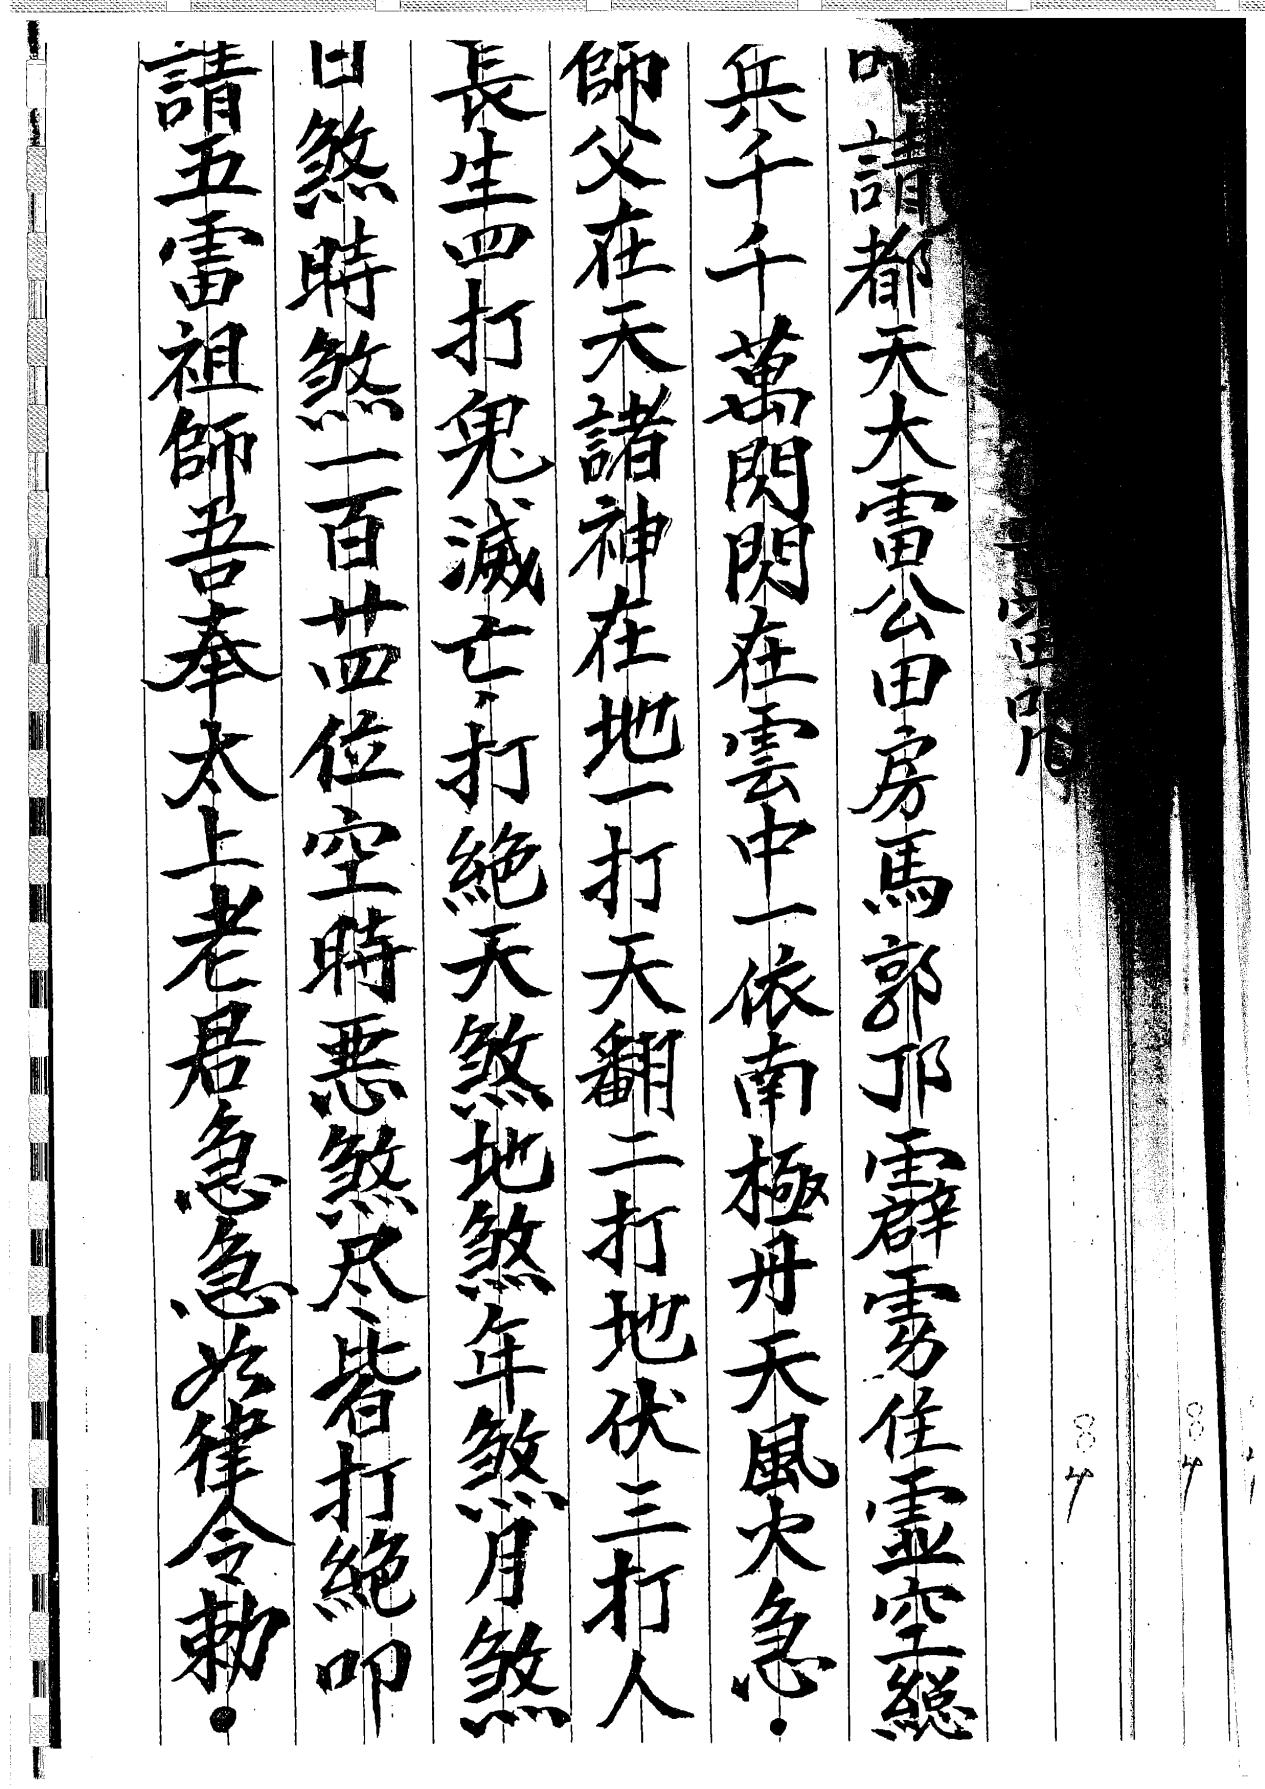 雷咒
叩請都天大雷公田房馬郭邝霹雳住霊空総
兵千千萬閃閃在雲中一依南極丹天風火急
師父在天諸神在地一打天翻二打地伏三打人
長生四打鬼滅亡打絕天煞地煞年煞月煞
日煞時煞一百廿四位空時悪煞尽皆打絕叩
請五雷祖師吾奉太上老君急急如律令勅